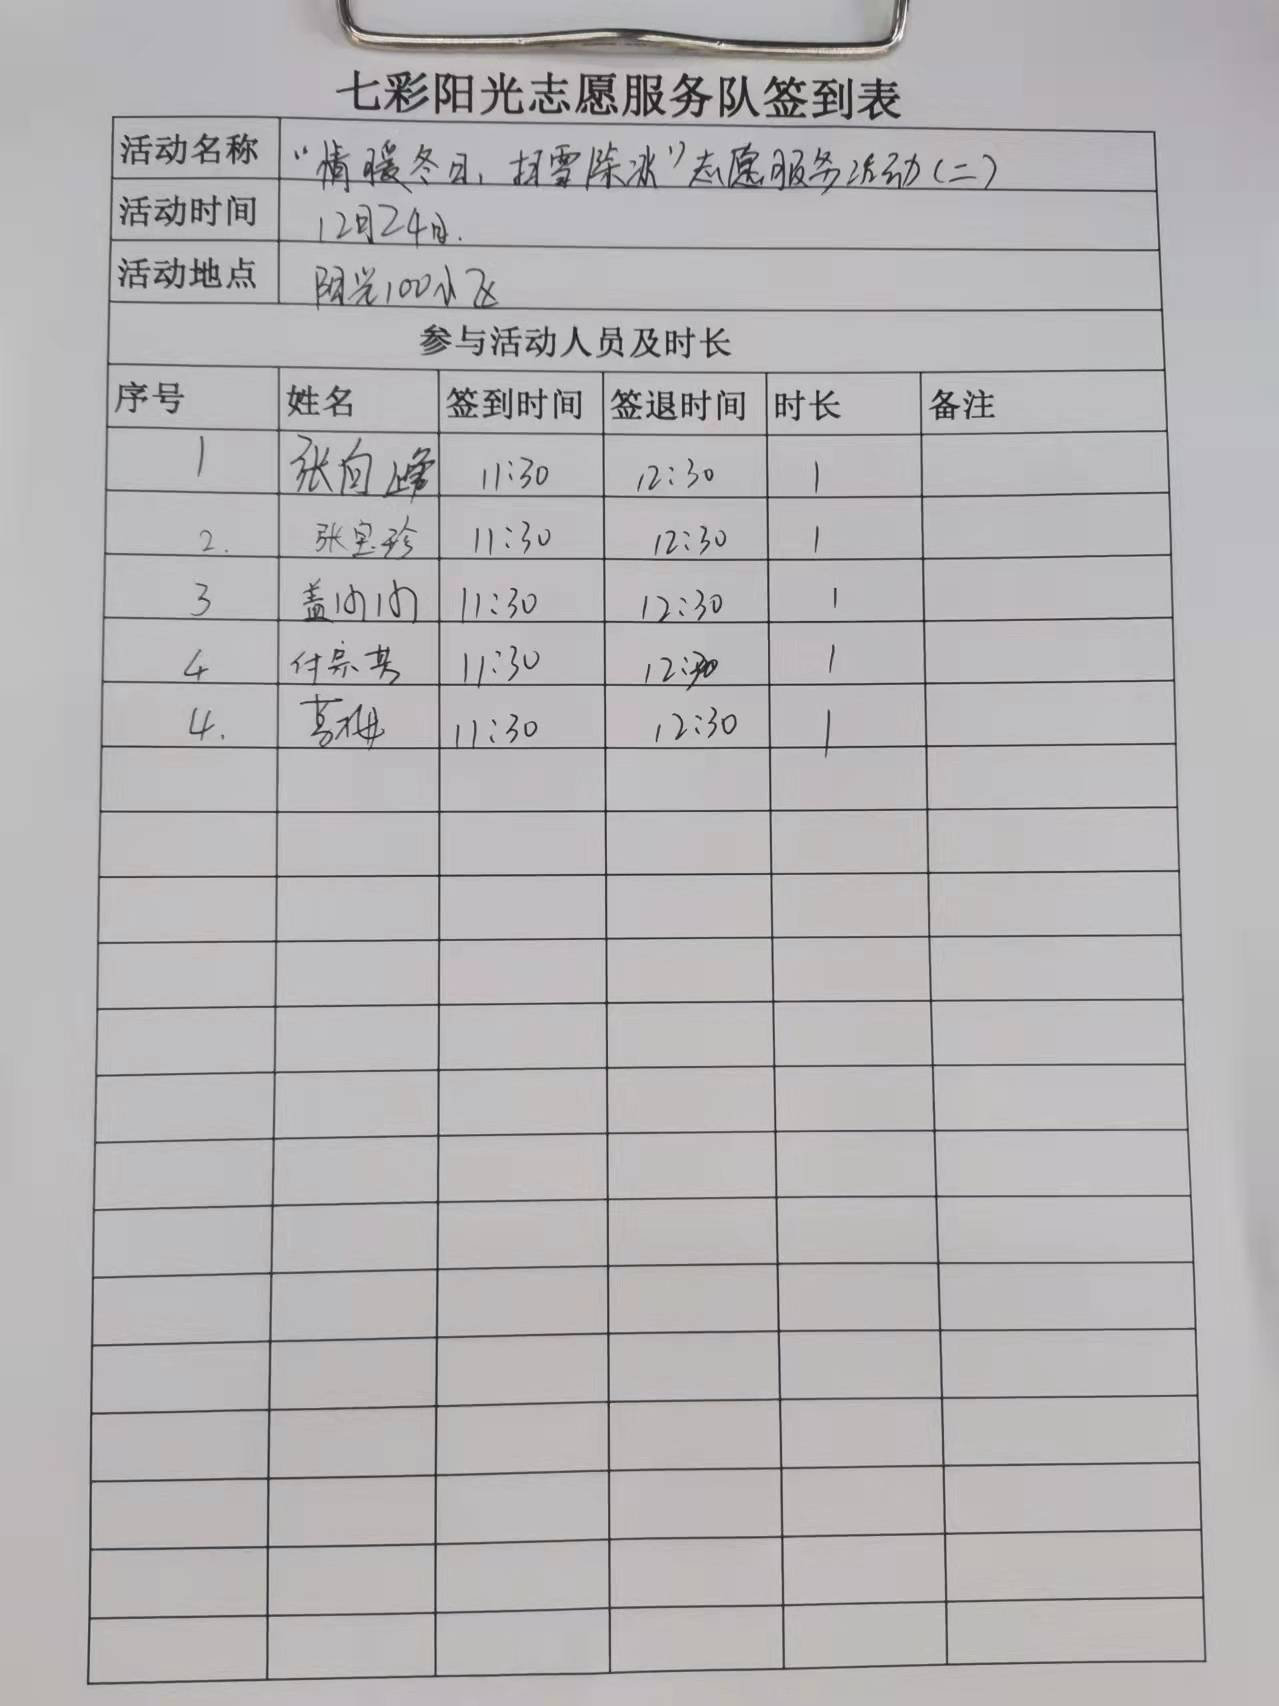 七彩阳光志愿服务队签到表
活动名称 “情暖冬日，扫雪除冰”志愿服务活动(二)
活动时间 12月24日.
活动地点 阳光100小区
参与活动人员及时长
序号 姓名 签到时间 签退时间 时长 备注
1 张向峰 11:30 12:30 1
2. 张宝珍 11:30 12:30 1
3 盖 11:30 12:30 1
4 付宗英 11:30 12:30 1
4. 葛梅 11:30 12:30 1